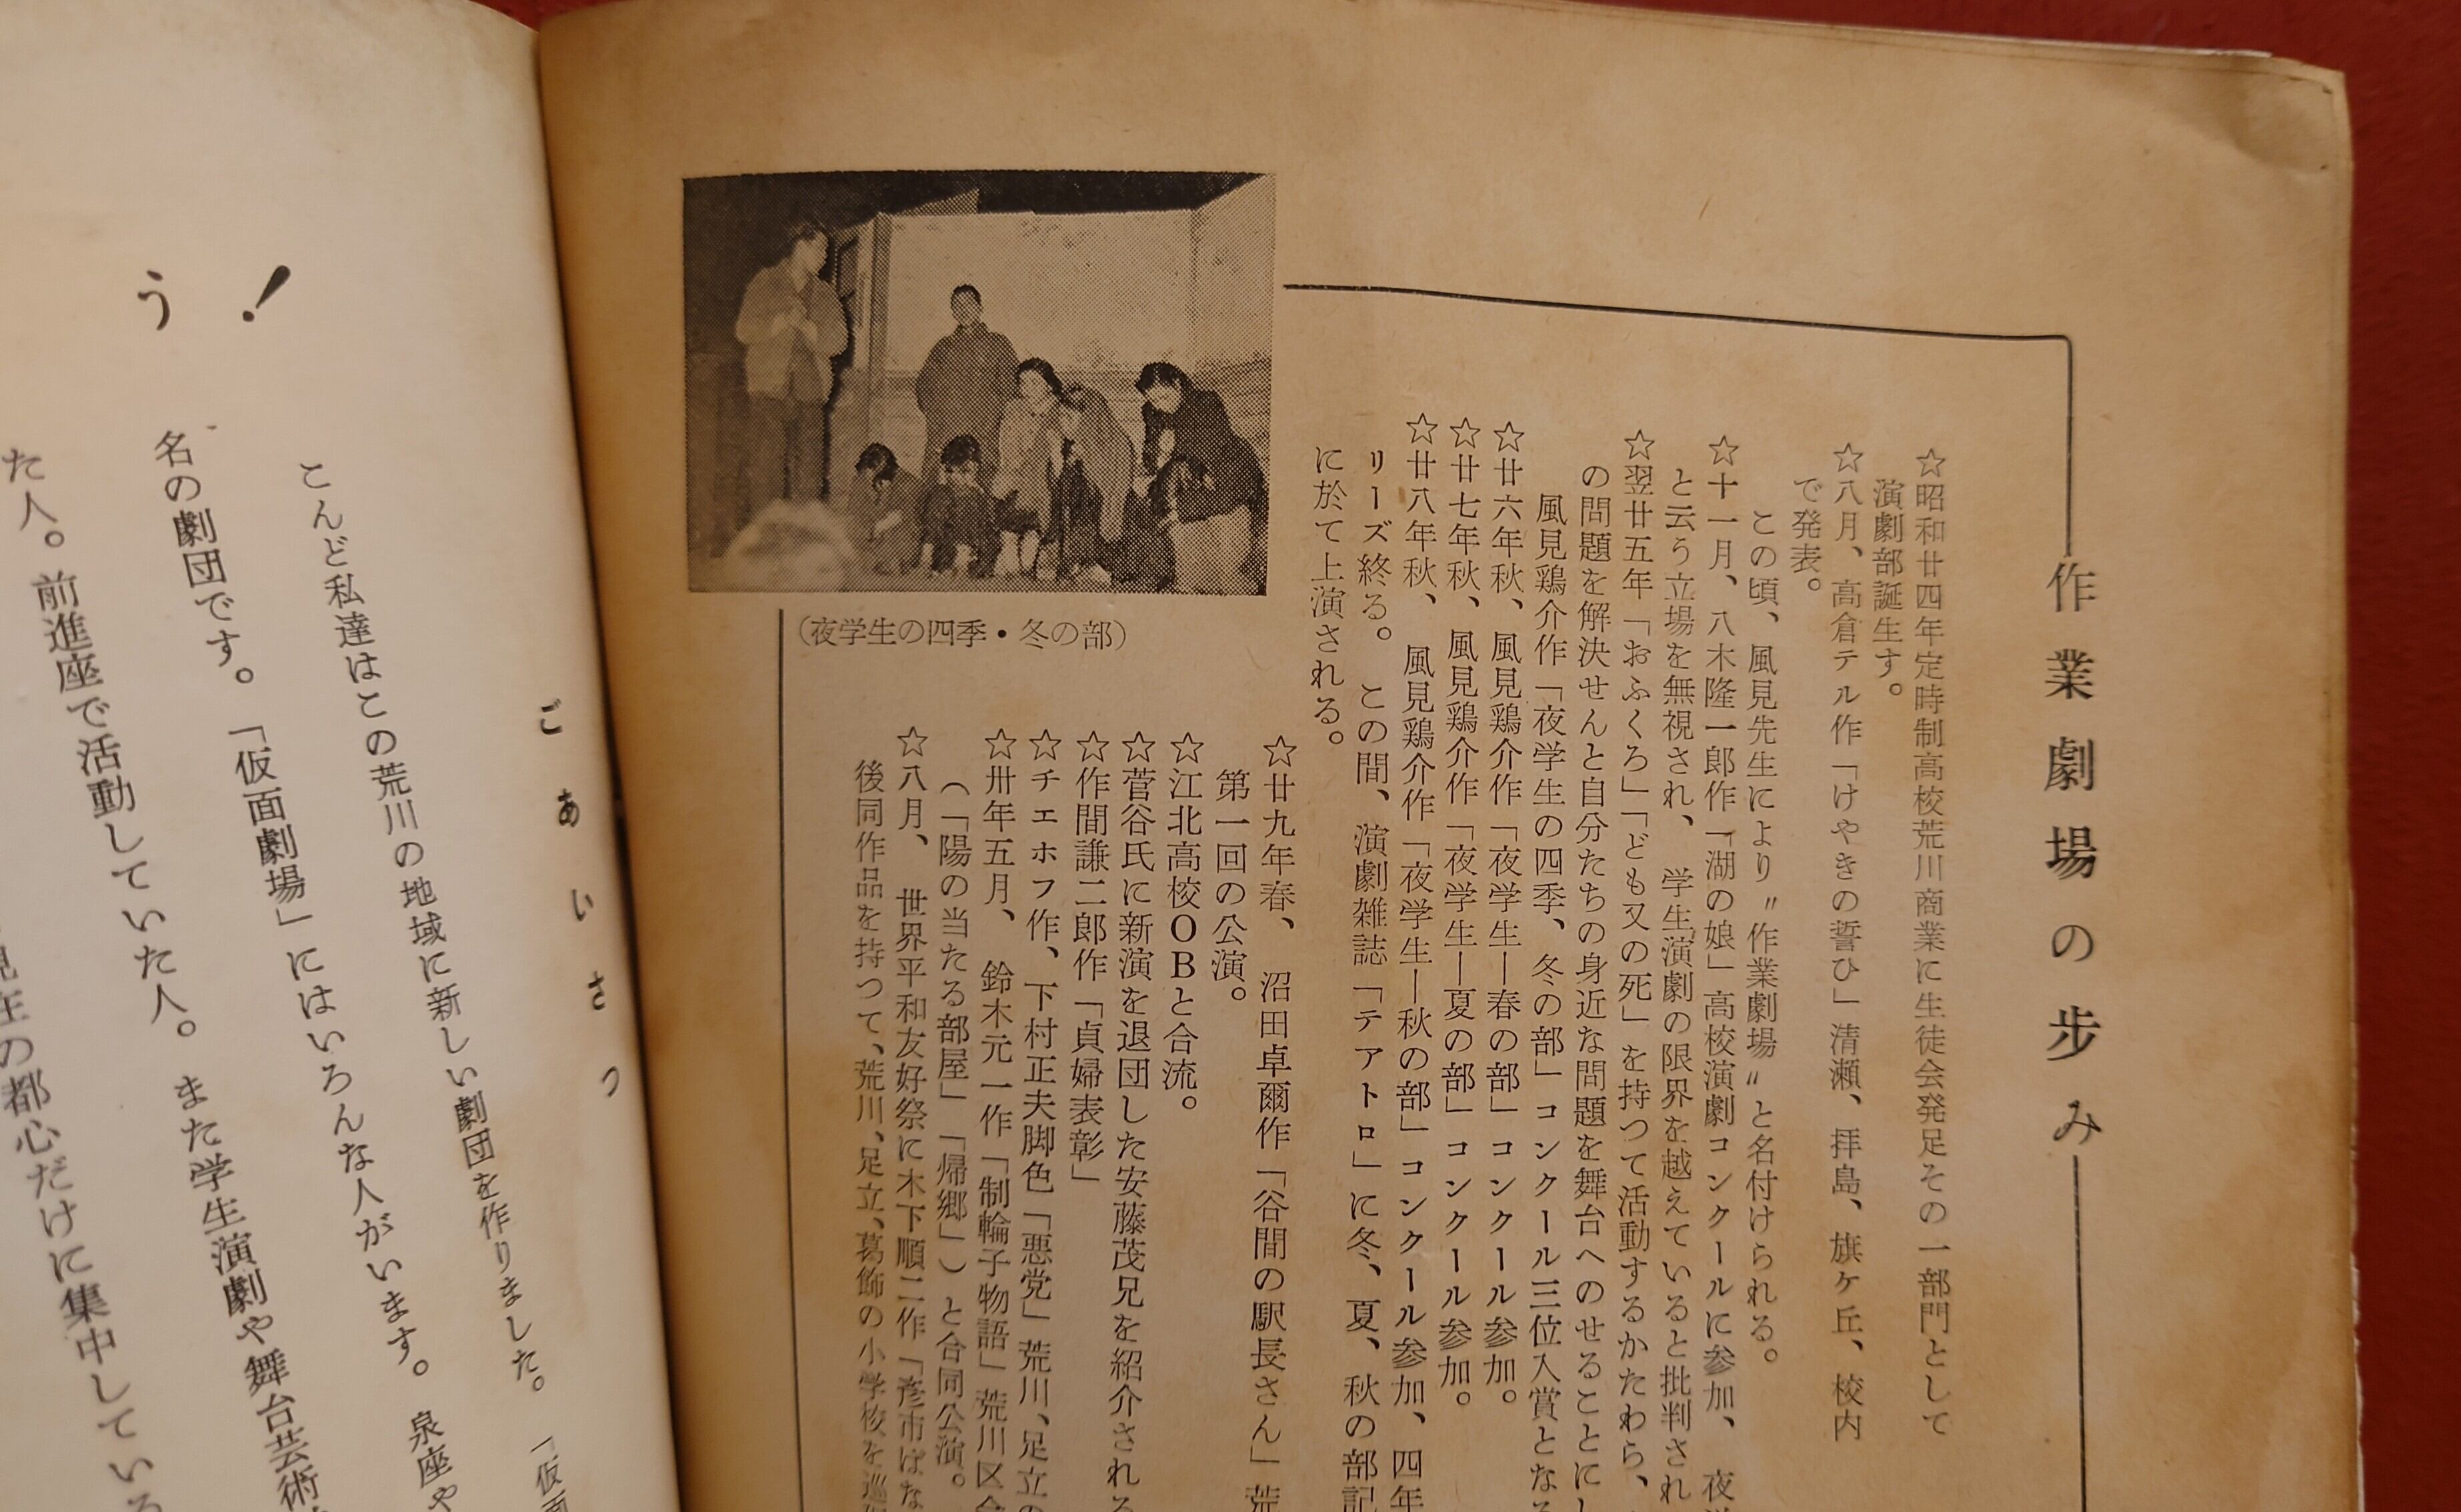 作業劇場の歩み
☆昭和廿四年定時制高校荒川商業に生徒会発足その一部門として
演劇部誕生す。
☆八月、高倉テル作「けやきの誓ひ」清瀬、拝島、旗ケ丘、校内
で発表。
この頃、風見先生により〃作業劇場〃と名付けられる。
☆十一月、八木隆一郎作「湖の娘」高校演劇コンクールに参加、夜
と云う立場を無視され、学生演劇の限界を越えていると批判され
☆翌廿五年「おふくろ」「ども又の死」を持つて活動するかたわら、
の問題を解決せんと自分たちの身近な問題を舞台へのせることにし
風見鶏介作「夜学生の四季、冬の部」コンクール三位入賞となる
☆廿六年秋、風見鶏介作「夜学生―春の部」コンクール参加。
☆廿七年秋、風見鶏介作「夜学生―夏の部」コンクール参加。
☆廿八年秋、風見鶏介作「夜学生―秋の部」コンクール参加、四年
リーズ終る。この間、演劇雑誌「テアトロ」に冬、夏、秋の部記
に於て上演される。
(夜学生の四季・冬の部)
☆廿九年春、沼田卓爾作「谷間の駅長さん」荒
第一回の公演。
☆江北高校OBと合流。
☆菅谷氏に新演を退団した安藤茂兄を紹介される
☆作間謙二郎作「貞婦表彰」
☆チエホフ作、下村正夫脚色「悪党」荒川、足立の
☆卅年五月、鈴木元一作「制輪子物語」荒川区会
(「陽の当たる部屋」「帰郷」)と合同公演。
☆八月、世界平和友好祭に木下順二作「彦市ばな
後同作品を持つて、荒川、足立、葛飾の小学校を巡
ごあいさつ
こんど私達はこの荒川の地域に新しい劇団を作りました。「仮面
名の劇団です。「仮面劇場」にはいろんな人がいます。泉座や
た人。前進座で活動していた人。また学生演劇や舞台芸術
の都心だけに集中している
！
う